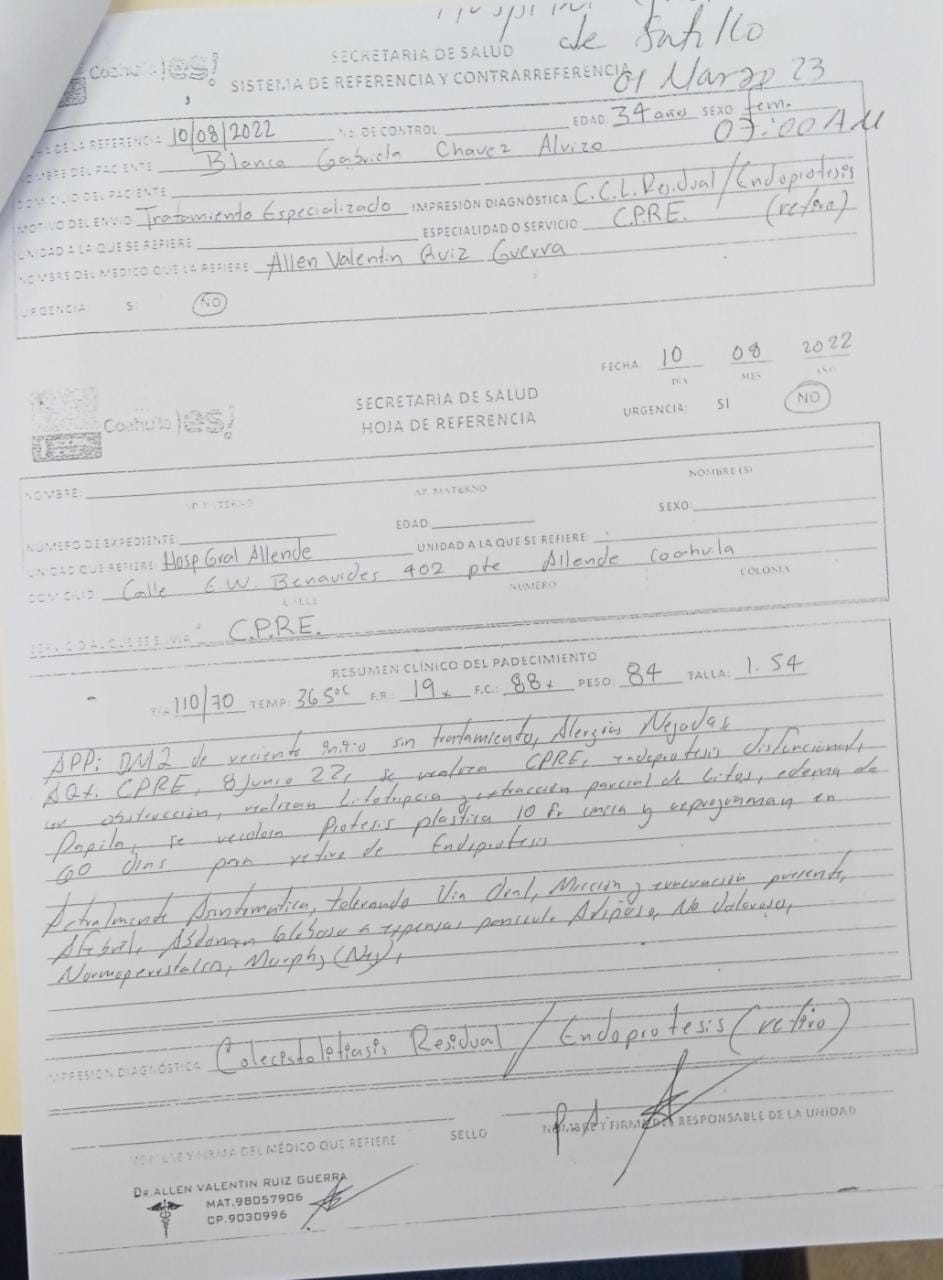 de Saltillo
SECRETARIA DE SALUD
Coahuila ¡es!
SISTEMA DE REFERENCIA Y CONTRARREFERENCIA
01 Marzo 23
DE LA REFERENCIA: 10/08/2022 No. DE CONTROL: EDAD: 34 años SEXO: fem.
07:00 AM
NOMBRE DEL PACIENTE Blanca Gabriela Chavez Alvizo
DOMICILIO DEL PACIENTE
MOTIVO DEL ENVIO Tratamiento Especializado IMPRESIÓN DIAGNÓSTICA: C.C.L. Residual / Endoprotesis
(retiro)
UNIDAD A LA QUE SE REFIERE ESPECIALIDAD O SERVICIO C.P.R.E.
NOMBRE DEL MÉDICO QUE LA REFIERE Allen Valentin Ruiz Guerra
URGENCIA: SI NO
FECHA: 10 08 2022
DÍA MES AÑO
Coahuila ¡es!
SECRETARIA DE SALUD
HOJA DE REFERENCIA
URGENCIA: SI NO
NOMBRE:
AP. PATERNO AP. MATERNO NOMBRE(S)
NÚMERO DE EXPEDIENTE: EDAD: SEXO:
UNIDAD QUE REFIERE: Hosp Gral Allende UNIDAD A LA QUE SE REFIERE:
DOMICILIO: Calle E.W. Benavides 402 pte Allende Coahuila
CALLE NÚMERO COLONIA
SERVICIO AL QUE SE ENVIA: C.P.R.E.
RESUMEN CLÍNICO DEL PADECIMIENTO
T/A 110/70 TEMP: 36.5°C F.R.: 19x F.C.: 88x PESO: 84 TALLA: 1.54
APP: DM2 de reciente inicio sin tratamiento, Alergias Negadas
AQx. CPRE, 8 Junio 22, se realiza CPRE, endoprotesis disfuncional,
por obstruccion, realizan Litotripcia y extracción parcial de litos, edema de
Papila, se recoloca Protesis plastica 10 Fr y reprograman en
60 dias para retiro de Endoprotesis
Actualmente Asintomatica, tolerando Via Oral, Miccion y evacuación presente,
Afebril, Abdomen Globoso a expensas paniculo Adiposo, No doloroso,
Normoperistalsis, Murphy (Neg),
IMPRESIÓN DIAGNÓSTICA: Colecistolitiasis Residual / Endoprotesis (retiro)
NOMBRE Y FIRMA DEL MÉDICO QUE REFIERE SELLO NOMBRE Y FIRMA DEL RESPONSABLE DE LA UNIDAD
DR. ALLEN VALENTIN RUIZ GUERRA
MAT.98057906
CP.9030996